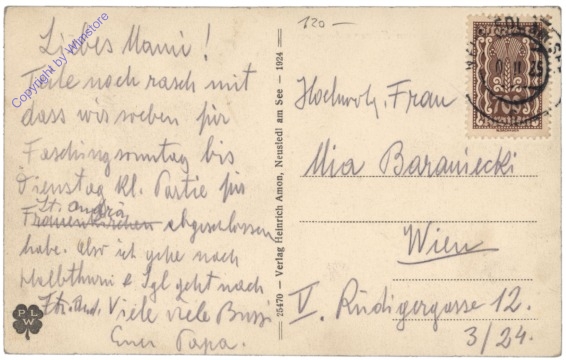 Liebes Mami!
Teile noch rasch mit
dass wir soeben für
Faschingsonntag bis
Dienstag kl. Partie für
St. Andrä
Frauenkirchen abgeschlossen
habe. Also ich gehe nach
Halbthurn & Igl geht nach
St. And. Viele viele Bussi
Euer Papa.
PLW
25470 – Verlag Heinrich Amon, Neusiedl am See – 1924
120 –
Hochwohl. Frau
Mia Baraniecki
Wien
V. Rüdigergasse 12.
3/24.
700
Copyright by Wimstore